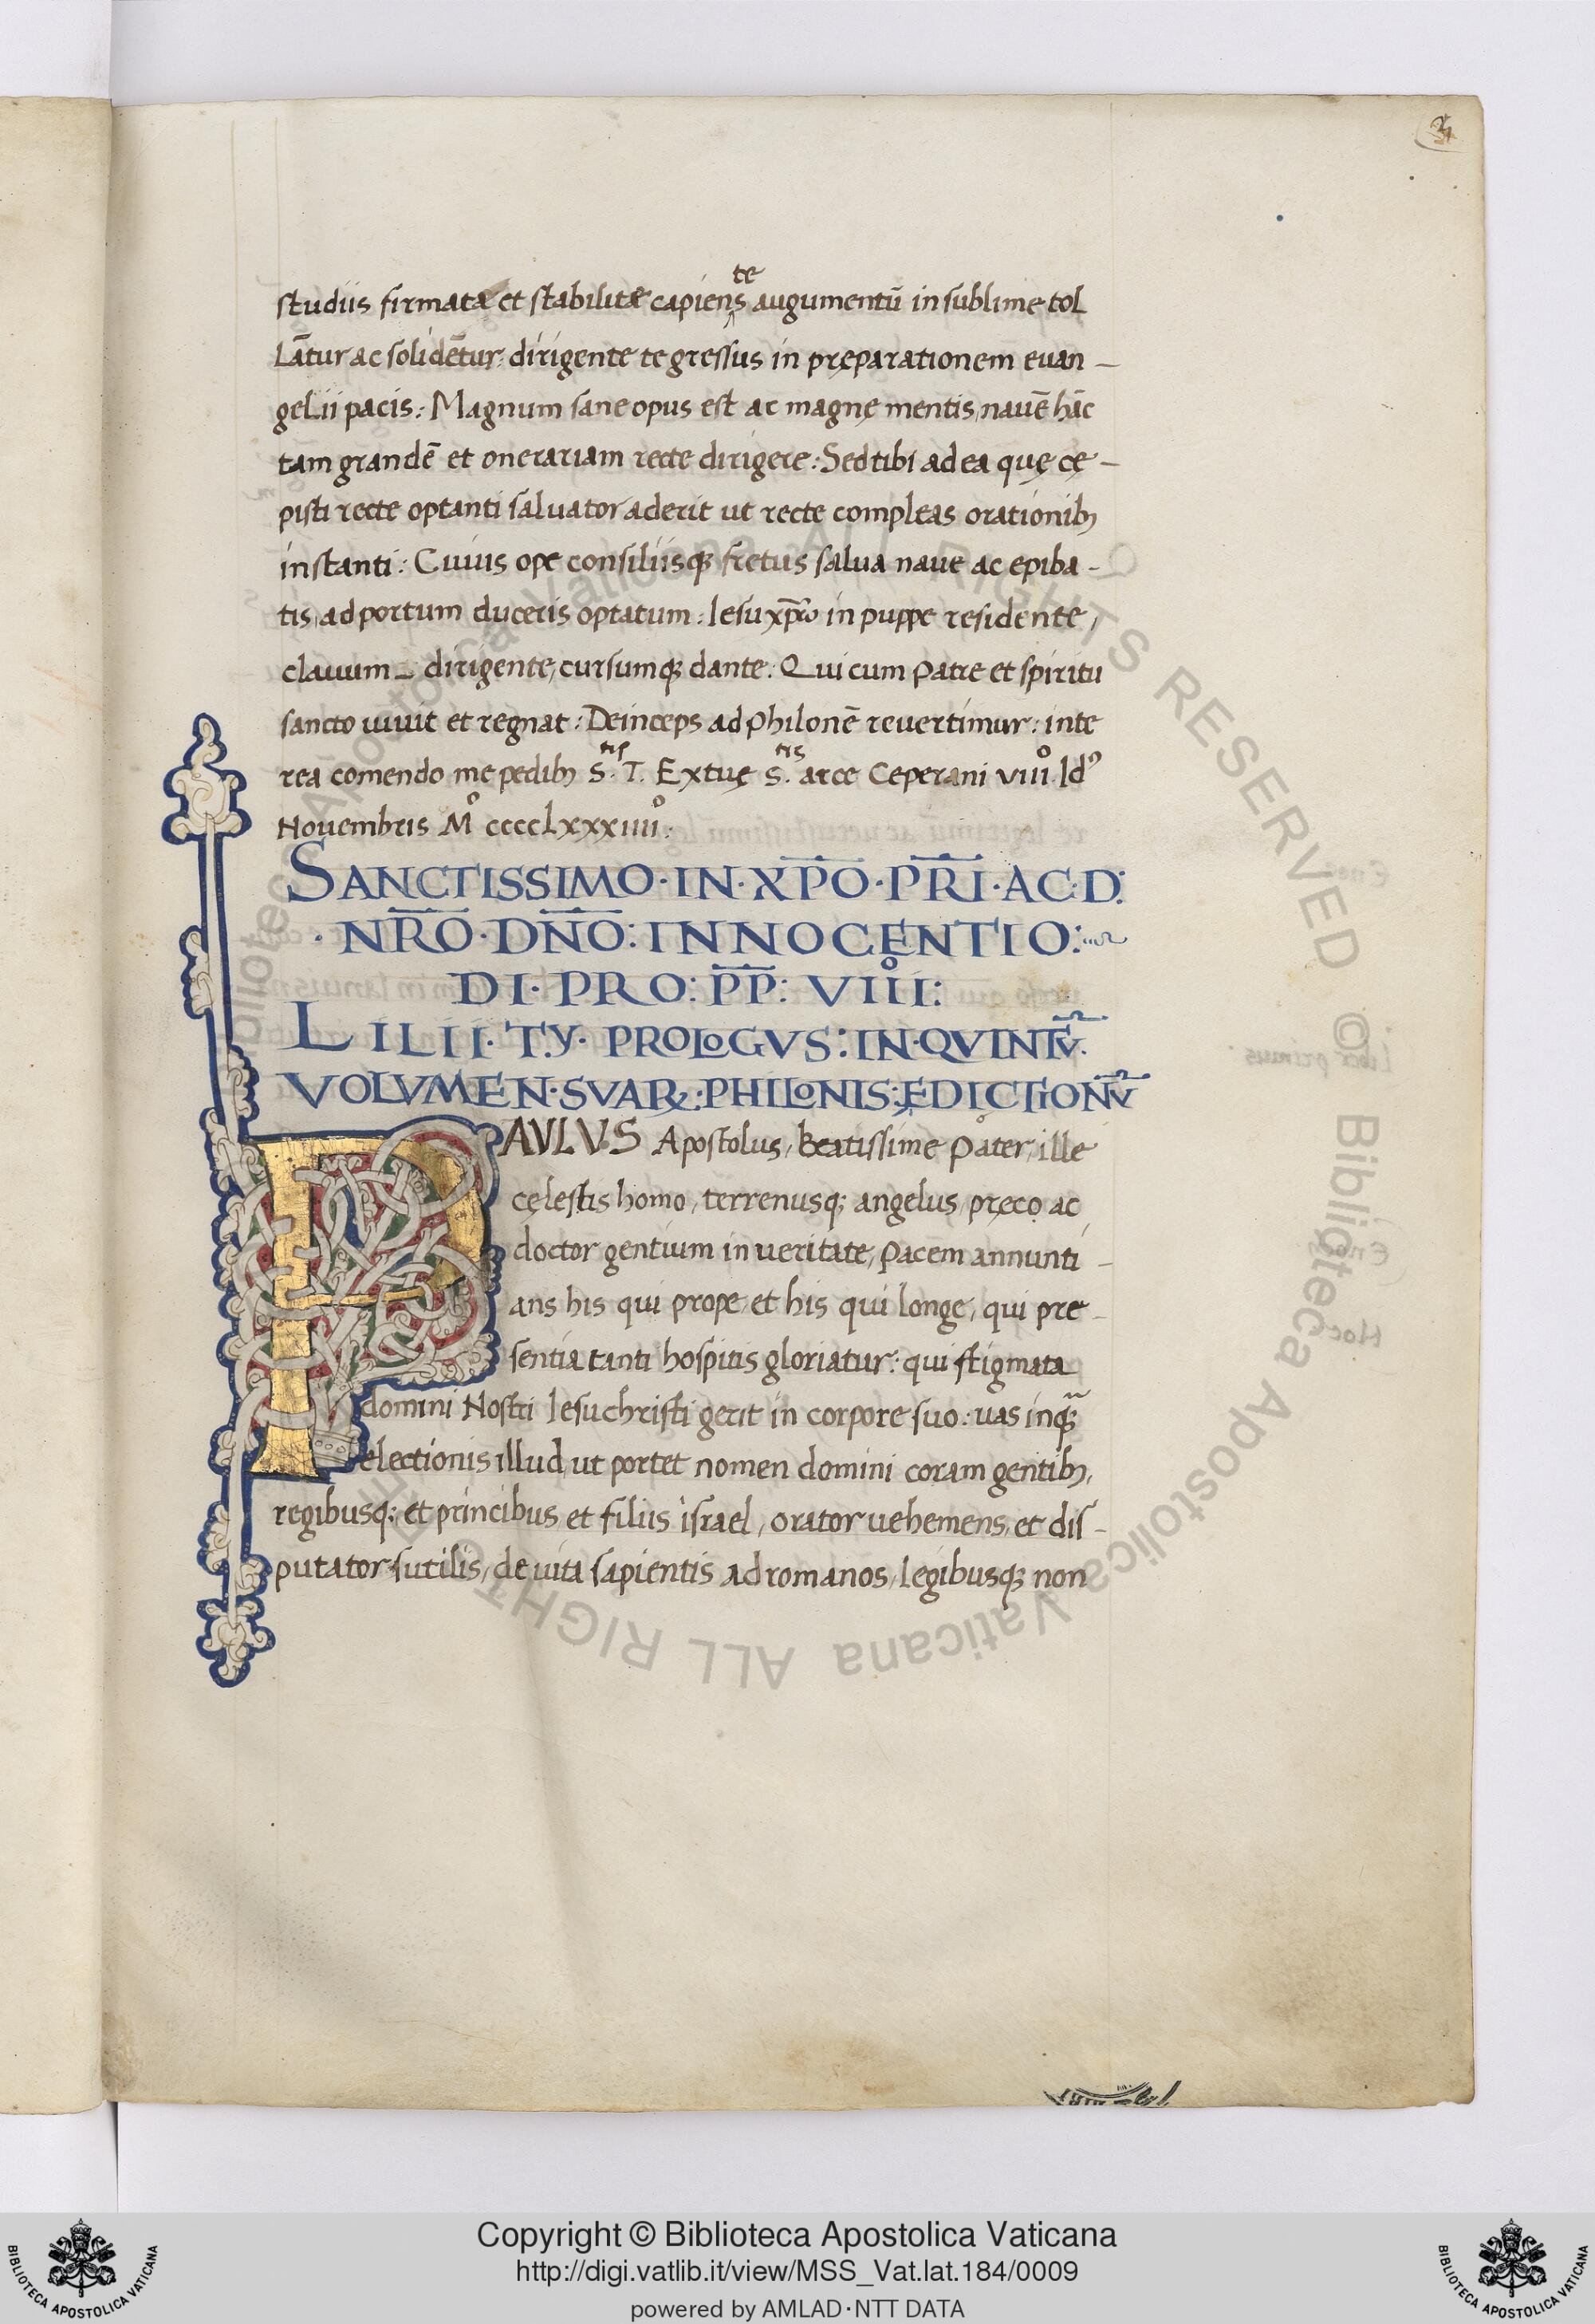 3
studiis firmatæ et stabilitæ capiens te augumentū in sublime tol
lātur ac solidētur: dirigente te gressus in pręparationem euan-
gelii pacis: Magnum sane opus est ac magnę mentis, nauē hāc
tam grandē et onerariam recte dirigere: Sed tibi ad ea quę cę-
pisti recte optanti saluator aderit ut recte compleas orationibꝫ
instanti: Cuius ope consiliisqꝫ fretus salua naue ac epiba-
tis, ad portum duceris optatum: Iesu xp̄o in puppe residente,
clauum - dirigente, cursumqꝫ dante: Qui cum Patre et spiritu
sancto uiuit et regnat: Deinceps ad Philonē reuertimur: inte
rea comendo me pedibꝫ S.tis T. Ex tuę S.tis arce Ceperani viiiͦ. Idꝰ
Nouembris Mͦ cccclxxxiiiiͦ:
SANCTISSIMO·IN·XP̄O·PR̄I·AC·D:
·NR̄O·DN̄O:INNOCENTIO:
DI·PRO:P̄P̄: VIIIͦ:
LILII·T.Y· PROLOGVS:IN·QVINTV̄.
VOLVMEN·SVAꝜ:PHILONIS:EDICTIONV̄
PAVLVS Apostolus, Beatissime Pater, ille
cęlestis homo, terrenusqꝫ angelus, pręco ac
doctor gentium in ueritate, Pacem annunti-
ans his qui prope, et his qui longe, qui pre-
sentia tanti hospitis gloriatur: qui stigmata
domini Nostri Iesu christi gerit in corpore suo: uas inqꝫ̃
electionis illud, ut portet nomen domini coram gentibꝫ,
regibusqꝫ: et princibus et filiis israel, orator uehemens, et dis-
putator sutilis, de uita sapientis ad romanos, legibusqꝫ non
Biblioteca Apostolica Vaticana ALL RIGHTS RESERVED © Biblioteca Apostolica Vaticana ALL RIGHT
Copyright © Biblioteca Apostolica Vaticana
http://digi.vatlib.it/view/MSS_Vat.lat.184/0009
powered by AMLAD·NTT DATA
BIBLIOTECA APOSTOLICA VATICANA
BIBLIOTECA APOSTOLICA VATICANA